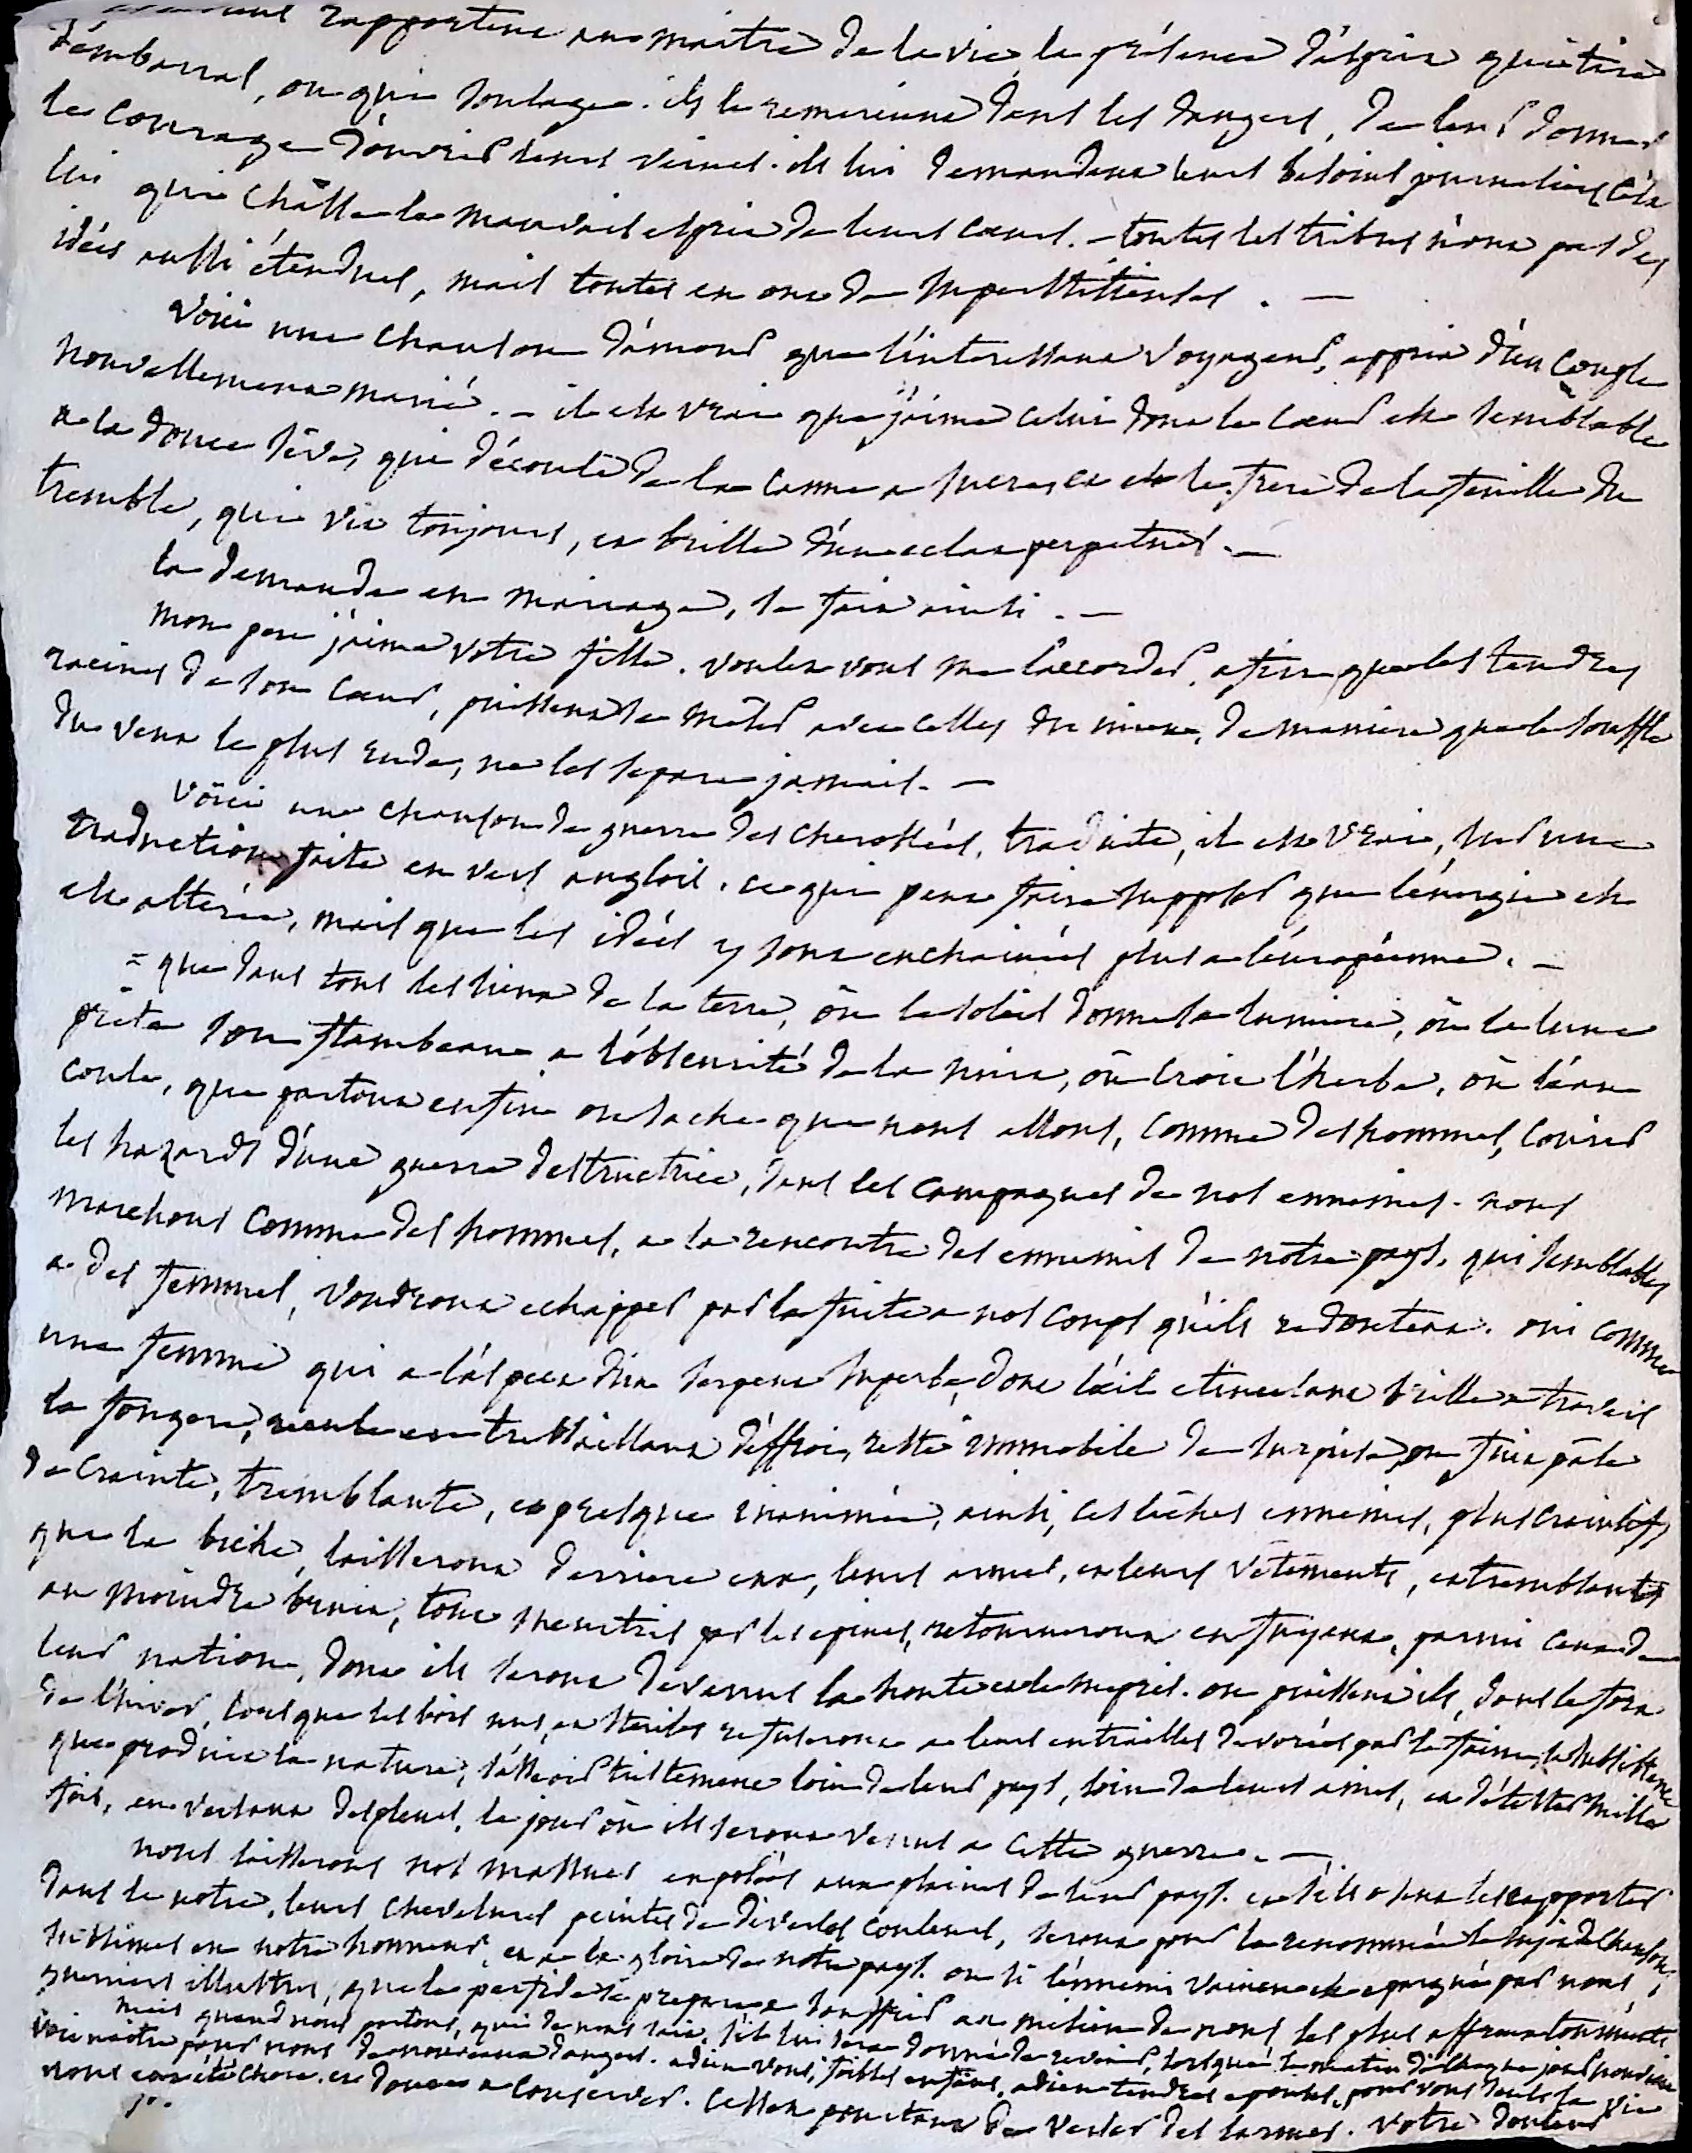 rapportent au maitre de la vie, la présence d'esprit qui tire
d'embarras, ou qui soulage. ils le remercient dans les dangers, de leur donner
le courage d'ouvrir leurs veines. ils lui demandent leurs besoins journaliers c'est
lui qui chasse le mauvais esprit de leurs coeurs. - toutes les tribus n'ont pas des
idées aussi étendues, mais toutes en ont de superstitieuses. -
voici une chanson d'amour que l'interessant voyageur, apprit d'un couple
nouvellement marié. - il est vrai que j'aime celui dont le coeur est semblable
a la douce séve, qui découle de la canne a sucre, et est le frere de la feuille du
tremble, qui vit toujours, et brille d'un eclat perpetuel. -
la demande en mariage, se fait ainsi. -
mon pere j'aime votre fille. voulez vous me l'accorder, afin que les tendres
racines de son coeur, puissent se mêler avec celles du mien, de maniere que le souffle
du vent le plus rude, ne les separe jamais. -
voici une chanson de guerre des cherokées, traduite, il est vrai, sur une
traduction faite en vers anglois. ce qui peut faire supposer que l'énergie en
est altérée, mais que les idées y sont enchainées plus a l'européenne. -
= que dans tous les lieux de la terre, où le soleil donne sa lumiere, où la lune
prête son flambeau a l'obscurité de la nuit, où croit l'herbe, où l'eau
coule, que partout enfin on sache que nous allons, comme des hommes, courir
les hazards d'une guerre destructrice, dans les campagnes de nos ennemis. nous
marchons comme des hommes, a la rencontre des ennemis de notre pays, qui semblables
a des femmes, voudront echapper par la fuite a nos coups qu'ils redoutent. oui comme
une femme qui a l'aspect d'un serpent superbe, dont l'oeil etincelant brille a travers
la fougere, recule en tressaillant d'effroi, reste immobile de surprise, ou fuit pâle
de crainte, tremblante, et presque inanimée, ainsi, ces lâches ennemis, plus craintifs
que la biche, laisseront derriere eux, leurs armes, et leurs vêtements, et tremblants
au moindre bruit, tout meurtris par les epines, retourneront en fuyant, parmi ceux de
leur nation, dont ils seront devenus la honte et le mepris. ou puissent ils, dans le fort
de l'hiver, lorsque les bois nus, et steriles refuseront a leurs entrailles devorées par la faim, la subsistance
que produit la nature, s'asseoir tristement loin de leur pays, loin de leurs amis, et détester mille
fois, en versant des pleurs, le jour où ils seront venus a cette guerre. -
nous laisserons nos massues exposées aux plaines de leur pays. et s'ils osent les rapporter
dans le notre, leurs chevelures peintes de diverses couleurs, seront pour la renommée le sujet de chansons
sublimes en notre honneur, et a la gloire de notre pays. ou si l'ennemi vaincu est epargné par nous,
guerriers illustres, que le perfide se prepare a souffrir au milieu de nous les plus affreux tourments
mais quand nous partons, qui de nous sait, s'il lui sera donné de revenir, lorsque le matin de chaque jour
voit naître pour nous de nouveaux dangers. adieu vous, faibles enfans, adieu tendres epouses, pour vous seuls la vie
nous eut été chere, et douce a conserver. cessez pourtant de verser des larmes. votre douleur